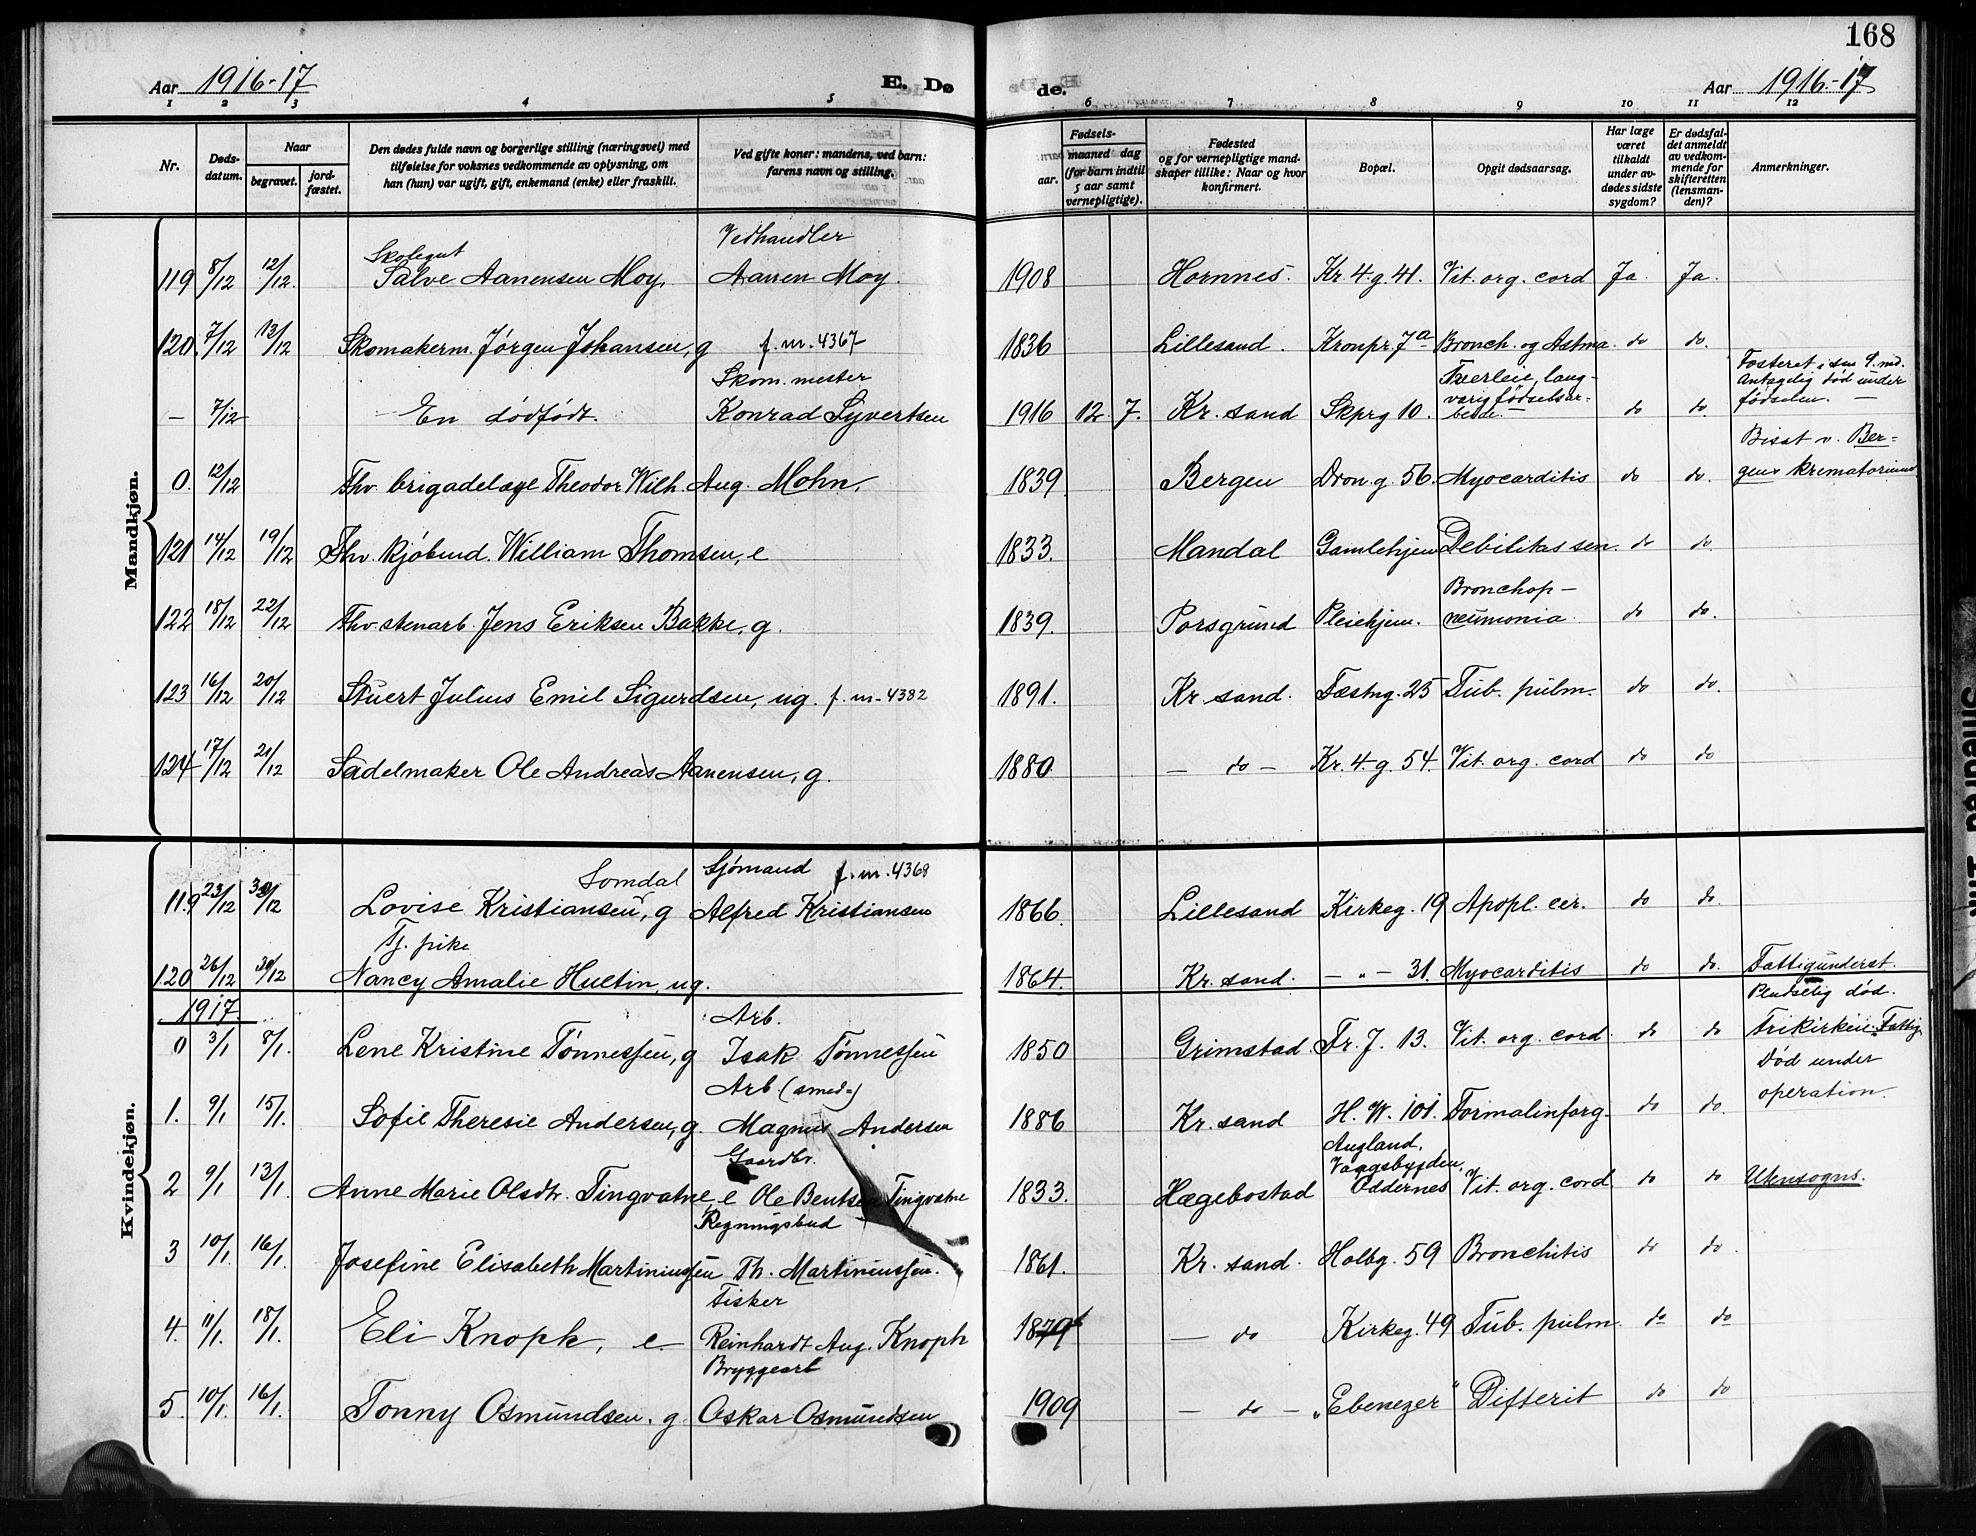 168
Aar 1916-17
E. Dø
de.
Aar 1916-17
1 2 3 4 5 6 7 8 9 10 11 12
Nr.
Døds-
datum.
Naar
begravet.
jord-
fæstet.
Den dødes fulde navn og borgerlige stilling (næringsvei) med
tilføielse for voksnes vedkommende av oplysning, om
han (hun) var ugift, gift, enkemand (enke) eller fraskilt.
Ved gifte koner: mandens, ved barn:
farens navn og stilling.
Fødsels-
aar.
maaned dag
(for barn indtil
5 aar samt
vernepligtige).
Fødested
og for vernepligtige mand-
skaper tillike: Naar og hvor
konfirmert.
Bopæl.
Opgit dødsaarsag.
Har læge
været
tilkaldt
under av-
dødes sidste
sygdom?
Er dødsfal-
det anmeldt
av vedkom-
mende for
skifteretten
(lensman-
den)?
Anmerkninger.
Mandkjøn.
Skolegut Vedhandler
119 8/12 12/12. Salve Aanensen Moy, Aanen Moy. 1908 Hornnes. Kr. 4. g. 41. Vit. org. cord Ja. Ja.
120. 7/12 13/12 Skomakerm. Jørgen Johansen, g f. m. 4367 1836 Lillesand. Kronpr. 7a Bronch. og Astma. do do.
Skom. mester Tverleie, lang- Fosteret i sin 9. md.
varig fødselsar- Antagelig død under
– 7/12 En dødfødt. Konrad Syvertsen 1916 12. 7. Kr. sand Skprg 10. beide. – do do. fødselen. –
Bisat v. Ber-
0. 12/12 Fhv. brigadelæge Theodor Wilh. Aug. Mohn. 1839. Bergen Dron. g. 56. Myocarditis do do. gens krematorium
121 14/12 19/12 Fhv. kjøbmd. William Thomsen, e 1833. Mandal Gamlehjem Debilitas sen. do do.
Bronchop-
122 18/12 22/12 Fhv. stenarb. Jens Eriksen Bakke, g. 1839. Porsgrund Pleiehjem. neumonia do do.
123 16/12 20/12 Stuert Julius Emil Sigurdsen, ug. f. m. 4382 1891. Kr. sand. Fæstng. 25 Tub. pulm. do do.
124 17/12 21/12 Sadelmaker Ole Andreas Aanensen, g. 1880. – do – Kr. 4. g. 54. Vit. org. cord do do
Kvindekjøn.
Somdal Sjømand f. m. 4368
119 23/12 30/12 Lovise Kristiansen, g Alfred Kristiansen 1866. Lillesand Kirkeg. 19 Apopl. cer. do do.
Tj. pike
120 26/12 30/12 Nancy Amalie Hultin, ug. 1864. Kr. sand. – " – 31. Myocarditis do do. Fattigunderst.
1917. Arb. Pludselig død.
0 3/1 8/1. Lene Kristine Tønnessen, g Isak Tønnessen 1850 Grimstad Fr. J. 13. Vit. org. cord. do do Frikirken. Fattig
Arb (smed-) Død under
1. 9/1 15/1. Sofie Theresie Andersen, g. Magnus Andersen 1886 Kr. sand H. W. 101. Formalinforg. do do. operation.
Gaardbr. Augland,
Vaagsbygden,
2 9/1 13/1. Anne Marie Olsdtr. Tingvatne, e Ole Bentsen Tingvatne 1833. Hægebostad Oddernes Vit. org. cord do do Utensogns.
Regningsbud
3 10/1. 16/1. Josefine Elisabeth Martiniussen Th. Martiniussen. 1861. Kr. sand. Holbg. 59 Bronchitis do do.
Fisker
4. 11/1. 18/1. Eli Knoph, e – Reinhardt Aug. Knoph 1879 – do Kirkeg. 49 Tub. pulm. do do
Bryggearb
5. 10/1. 16/1. Tonny Osmundsen. g Oskar Osmundsen 1909 – do – „Ebenezer“ Difterit do do